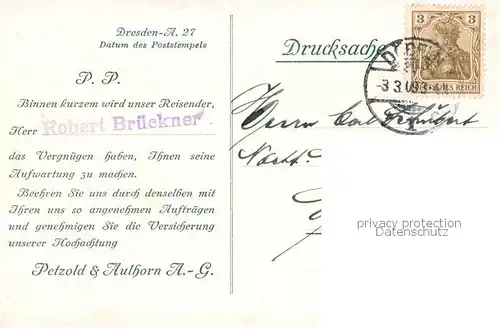 Dresden-A. 27
Datum des Poststempels
P. P.
Binnen kurzem wird unser Reisender,
Herr Robert Brückner
das Vergnügen haben, Ihnen seine
Aufwartung zu machen.
Beehren Sie uns durch denselben mit
Ihren uns so angenehmen Aufträgen
und genehmigen Sie die Versicherung
unserer Hochachtung
Petzold & Aulhorn A.-G.
Drucksache
3 3
REICH
-3 3 09
Herrn Carl
privacy protection
Datenschutz